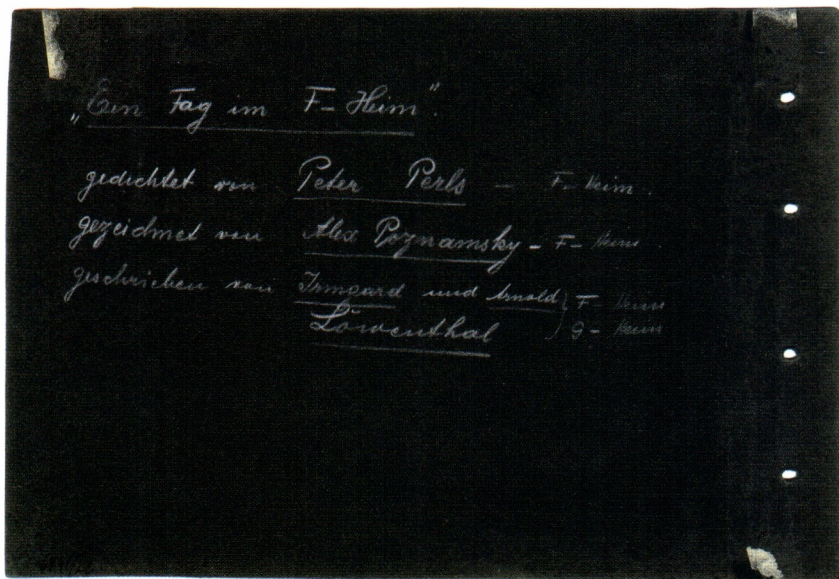 „Ein Tag im F-Heim".
gedichtet von Peter Perls – F-Heim.
gezeichnet von Alex Poznamsky – F-Heim
geschrieben von Irmgard und Arnold } F-Heim
Löwenthal } G-Heim